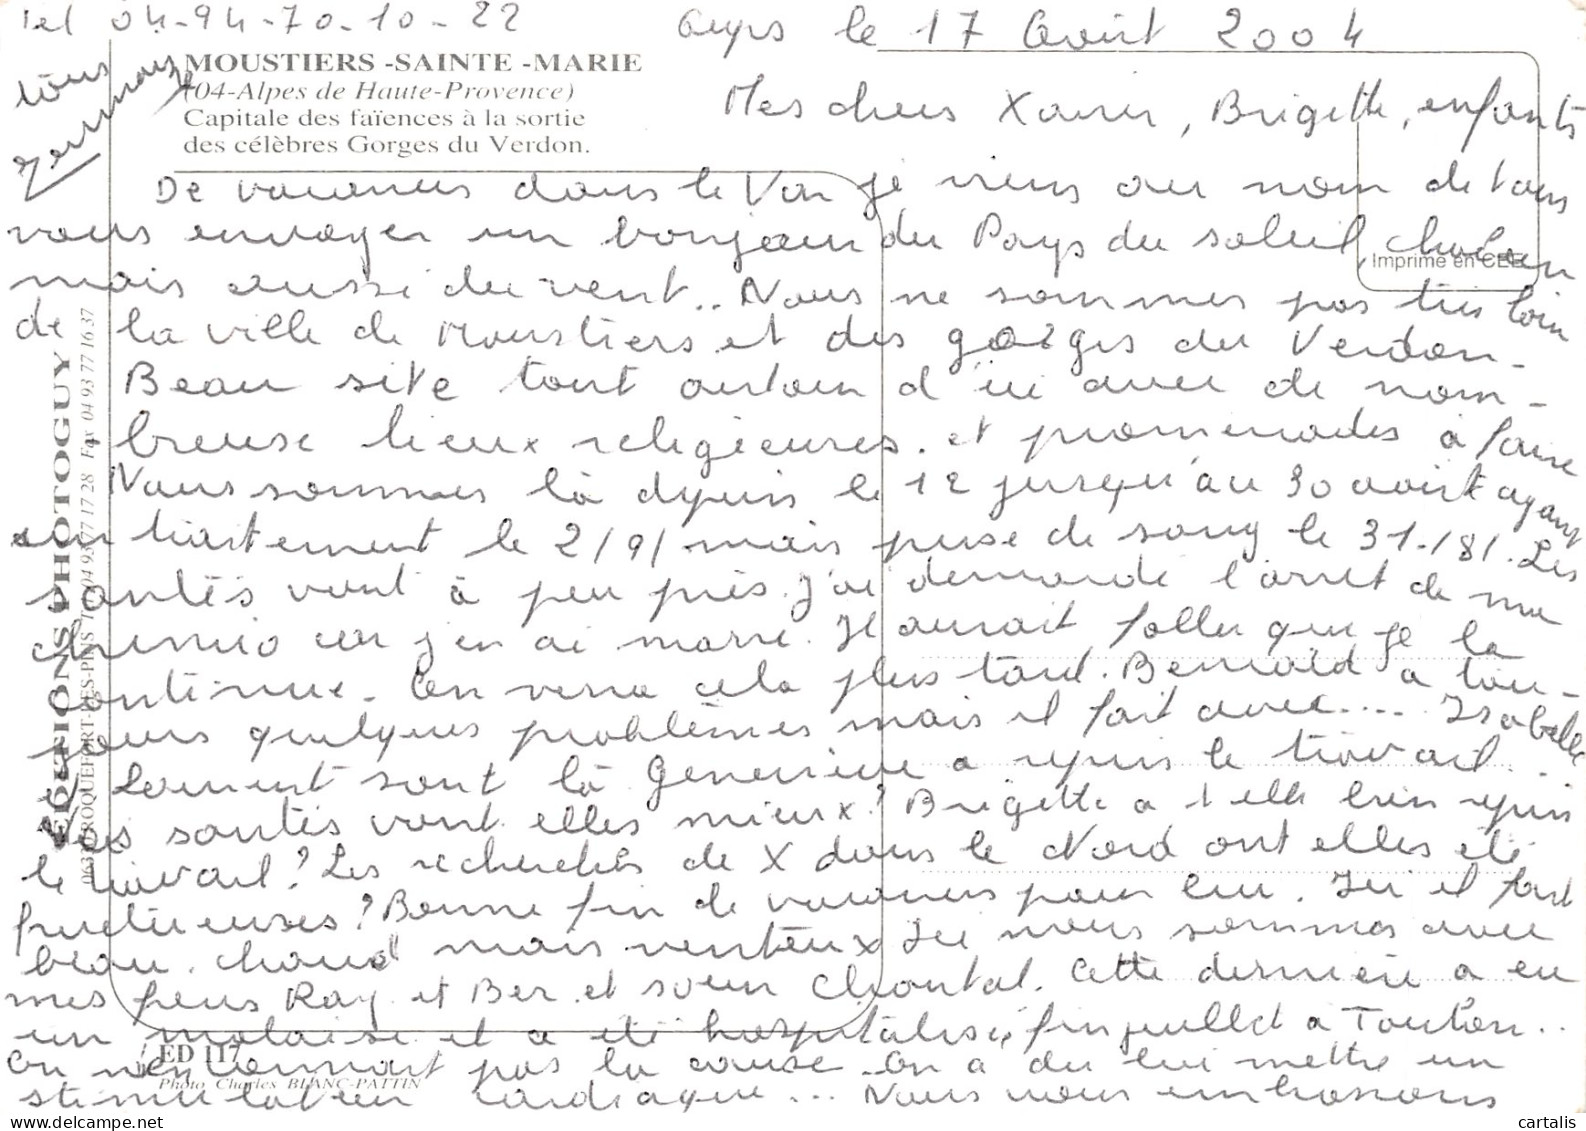 Tel 04-94-70-10-22
Cuyrs le 17 Août 2004
MOUSTIERS -SAINTE -MARIE
(04-Alpes de Haute-Provence)
Capitale des faïences à la sortie
des célèbres Gorges du Verdon.
Mes chers Xavier, Brigitte, enfants
De vacances dans le Var je viens au nom de tous
vous envoyer un bonjour du Pays du soleil, chaleur
Imprimé en CEE
mais aussi du vent.. Nous ne sommes pas très loin
de la ville de Moustiers et des gorges du Verdon.
Beau site tout autour d'ici avec de nom-
breuse lieux religieuses. et promenades à faire
Nous sommes là depuis le 12 jusqu'au 30 août ayant
un traitement le 2/9/ mais prise de sang le 31./8/. Les
santés vont à peu près. J'ai demandé l'arret de ma
chimio car j'en ai marre. Il aurait faller que je la
continue. On verra cela plus tard. Bernard a tou-
jours quelques problèmes mais il fait avec.... Isabelle
Laurent sont là Geneviève a repris le travail..
Vos santés vont elles mieux? Brigitte a t elle bien repris
le travail? Les recherches de X dans le Nord ont elles été
fructueuses? Bonne fin de vacances pour eux. Ici il fait
beau, chaud mais venteux Ici nous sommes avec
mes frers Ray et Ber et soeur Chantal. Cette dernière a eu
un malaise et a été hospitalisé fin juillet a Toulon..
On n'en connait pas la cause. On a du lui mettre un
stimulateur cardiaque... Nous vous embrassons
tous
Germaine
EDITIONS PHOTOGUY
06330 ROQUEFORT-LES-PINS Tél. 04 93 77 17 28 Fax 04 93 77 16 37
ED 117
Photo Charles BLANC-PATTIN
www.delcampe.net
cartalis